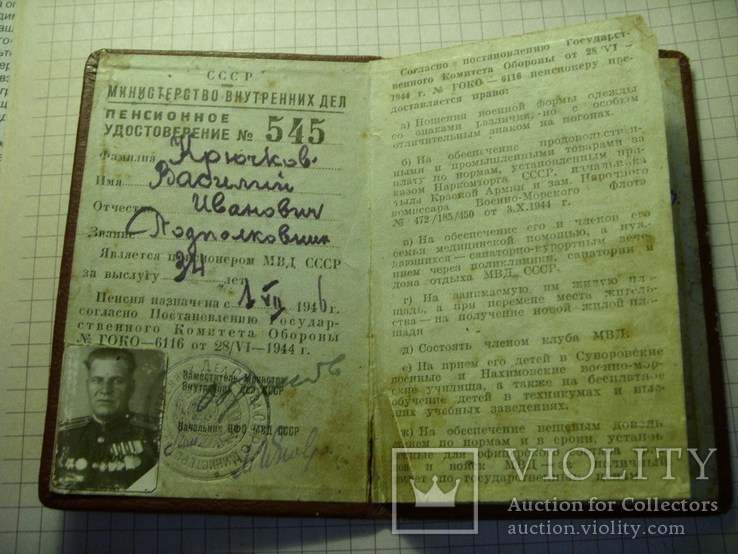 СССР
МИНИСТЕРСТВО ВНУТРЕННИХ ДЕЛ
ПЕНСИОННОЕ
УДОСТОВЕРЕНИЕ № 545
Фамилия Крючков
Имя Василий
Отчест Иванович
Звание Подполковник
Является пенсионером МВД СССР
за выслугу 34 лет
Пенсия назначена с 1 VII 1946 г.
согласно Постановлению Государ-
ственного Комитета Обороны
№ ГОКО—6116 от 28/VI—1944 г.
Заместитель Министра
Внутренних Дел СССР
Начальник ЦФО МВД СССР
Согласно постановлению Государст-
венного Комитета Обороны от 28/VI—
1944 г. № ГОКО—6116 пенсионеру пре-
доставляется право:
а) Ношения военной формы одежды
со знаками различия, но с особым
отличительным знаком на погонах.
б) На обеспечение продовольствен-
ными и промышленными товарами за
плату по нормам, установленным при-
казом Наркомторга СССР, начальника
тыла Красной Армии и зам. Народного
комиссара Военно-Морского Флота
№ 472/185/450 от 3.X.1944 г.
в) На обеспечение его и членов его
семьи медицинской помощью, а нуж-
дающихся—санаторно-курортным лече-
нием через поликлиники, санатории и
дома отдыха МВД СССР.
г) На занимаемую им жилую пло-
щадь, а при перемене места житель-
ства— на получение новой жилой пло-
щади
д) Состоять членом клуба МВД.
е) На прием его детей в Суворовские
военные и Нахимовские военно-мор-
ские училища, а также на бесплатное
обучение детей в техникумах и выс-
ших учебных заведениях.
ж) На обеспечение вещевым доволь-
ствием по нормам и в сроки, установ-
ные для офицерского
и войск МВД—
VIOLITY
Auction for Collectors
auction.violity.com